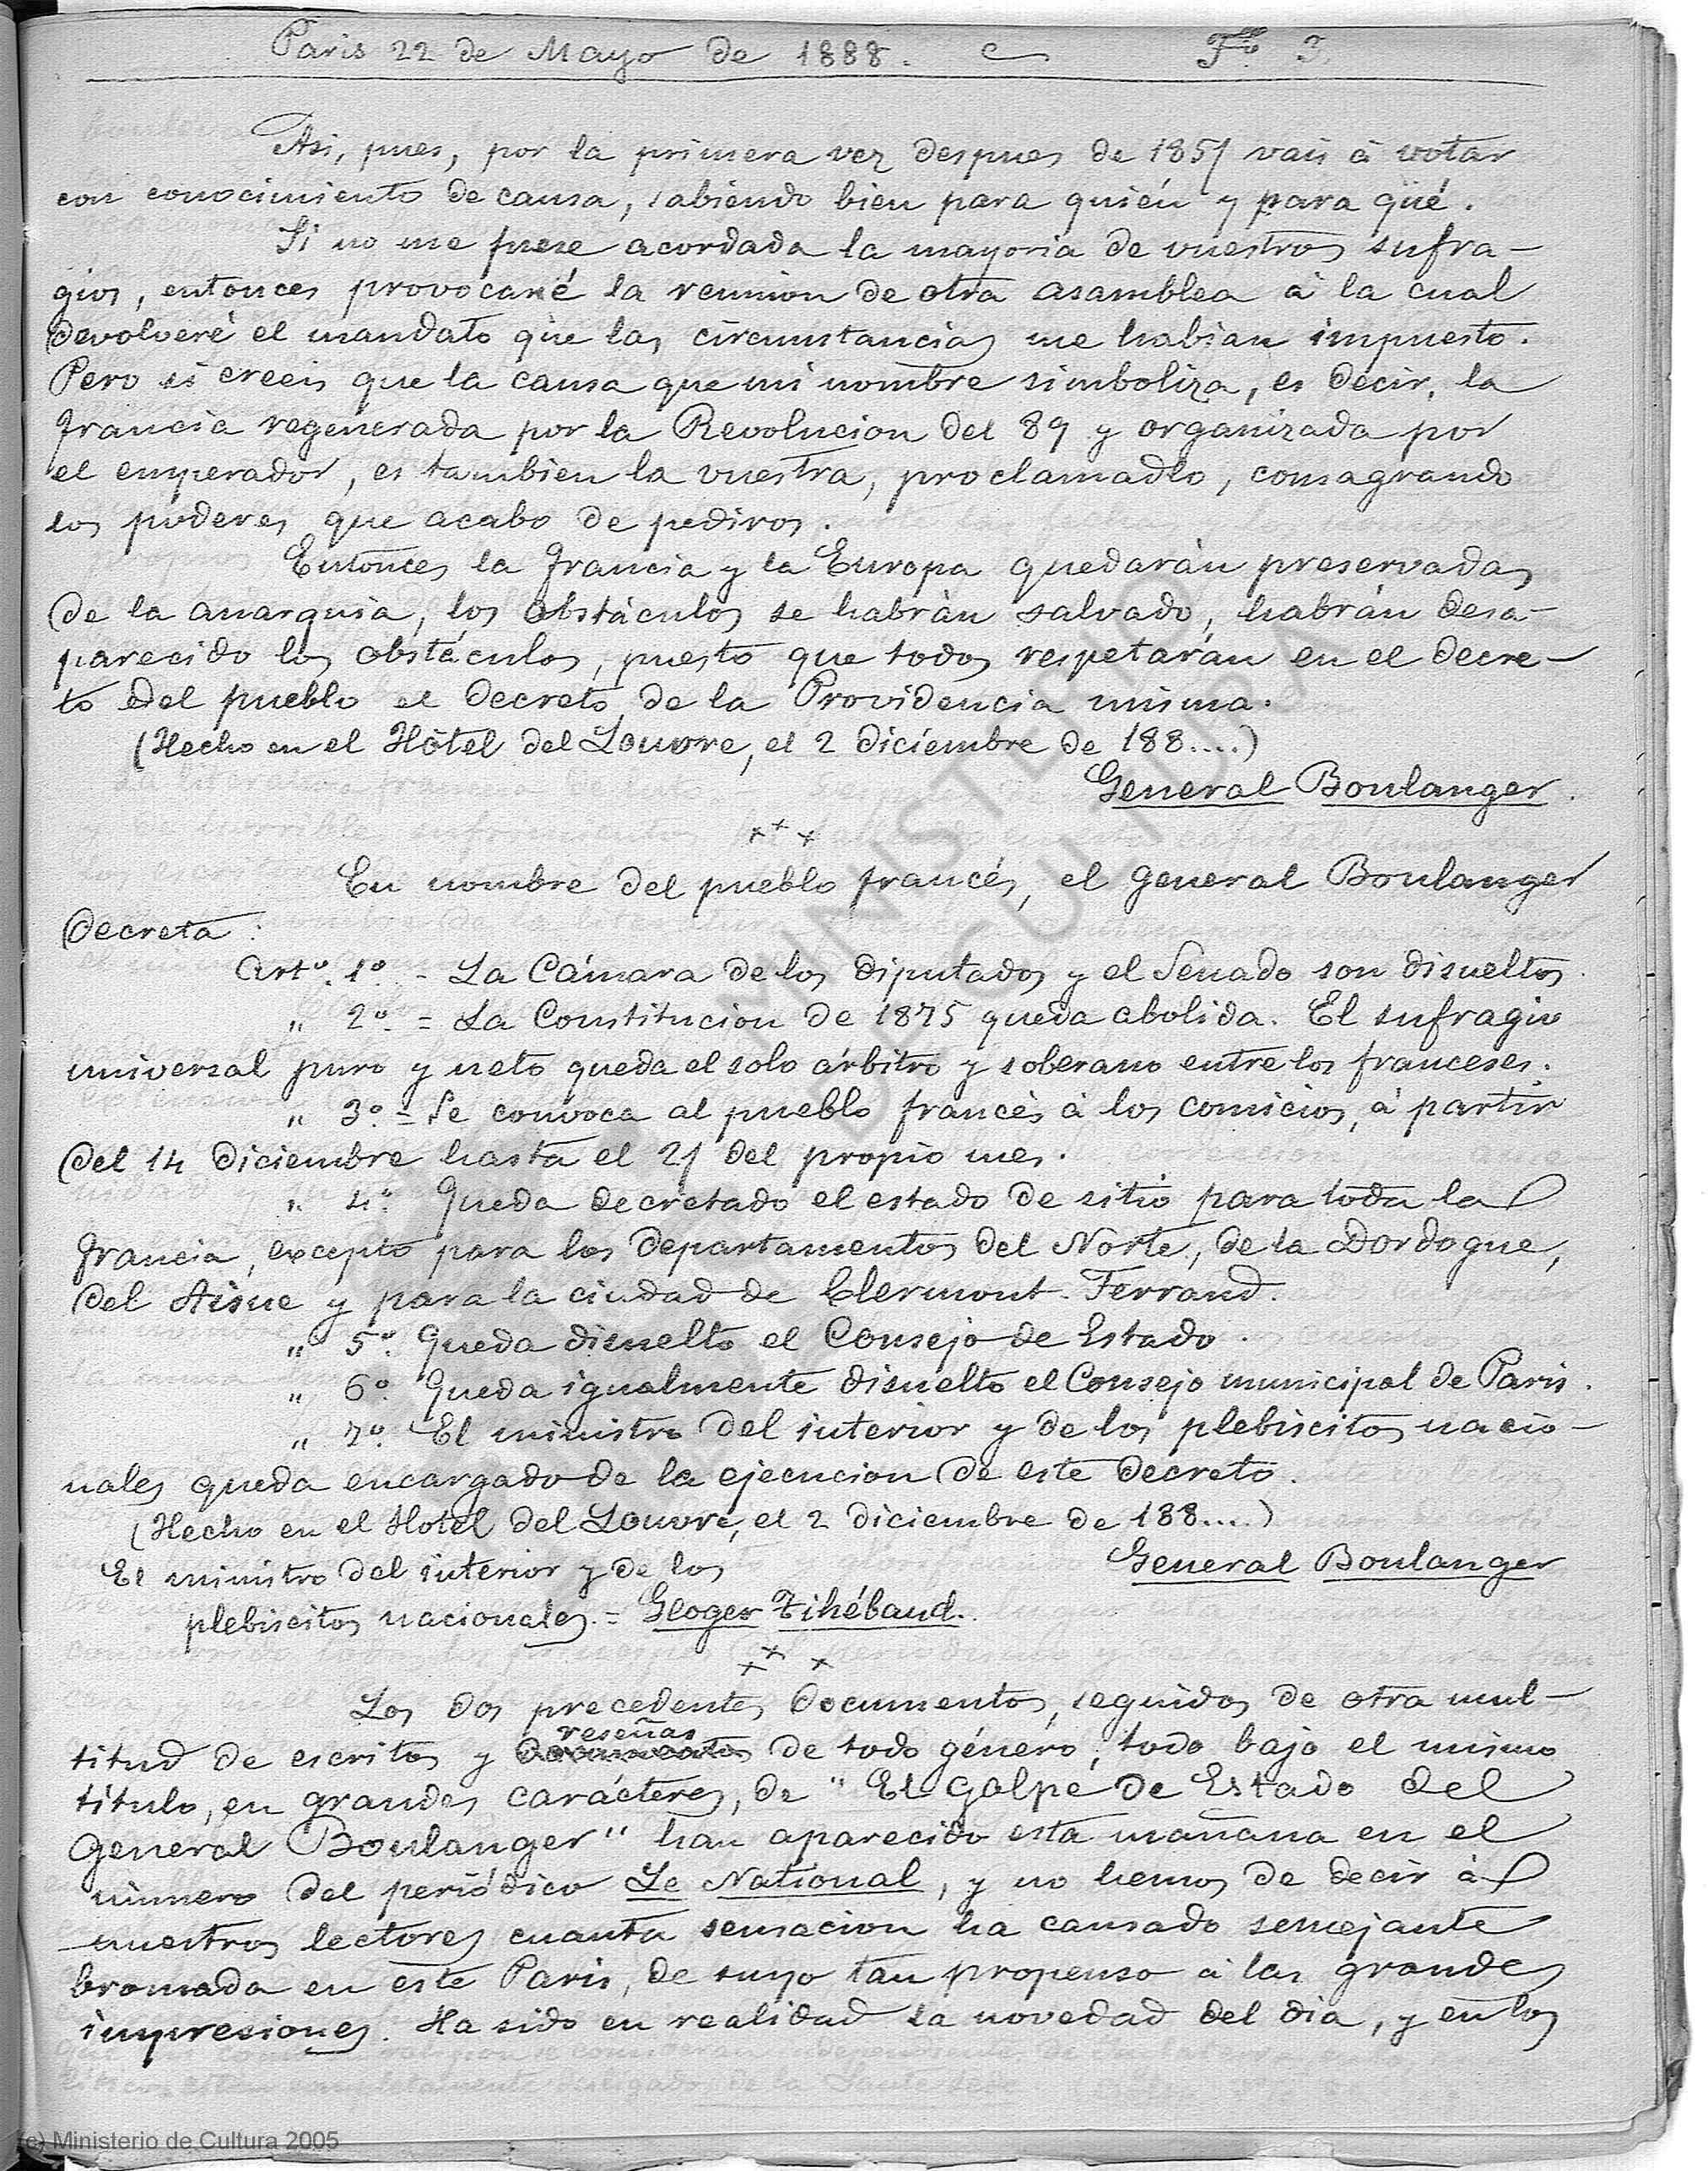 Paris 22 de Mayo de 1888. Fº 3.
Asi, pues, por la primera vez despues de 1851 vais á votar
con conocimiento de causa, sabiendo bien para quién y para qué.
Si no me fuese acordada la mayoria de vuestros sufra-
gios, entonces provocaré la reunion de otra asamblea á la cual
devolveré el mandato que las circunstancias me habian impuesto.
Pero si creeis que la causa que mi nombre simboliza, es decir, la
francia regenerada por la Revolucion del 89 y organizada por
el emperador, es tambien la vuestra, proclamadlo, consagrando
los poderes que acabo de pediros.
Entonces la francia y la Europa quedarán preservadas
de la anarquia, los obstáculos se habrán salvado, habrán desa-
parecido los obstáculos, puesto que todos respetarán en el decre-
to del pueblo el decreto de la Providencia misma.
(Hecho en el Hôtel del Louvre, el 2 diciembre de 188....)
General Boulanger.
En nombre del pueblo francés, el general Boulanger
decreta:
Artº. 1º - La Cámara de los diputados y el Senado son disueltos.
" 2º = La Constitucion de 1875 queda abolida. El sufragio
universal puro y neto queda el solo árbitro y soberano entre los franceses.
" 3º = Se convoca al pueblo francés á los comicios, á partir
del 14 diciembre hasta el 21 del propio mes.
" 4º. Queda decretado el estado de sitio para toda la
francia, excepto para los departamentos del Norte, de la Dordogne,
del Aisne y para la ciudad de Clermont-Ferrand.
" 5º. Queda disuelto el Consejo de Estado.
" 6º. Queda igualmente disuelto el Consejo municipal de Paris.
" 7º. El ministro del interior y de los plebiscitos nacio-
nales queda encargado de la ejecucion de este decreto.
(Hecho en el Hotel del Louvre, el 2 diciembre de 188....)
General Boulanger
El ministro del interior y de los
plebiscitos nacionales = Geoger Tihébaud.
Los dos precedentes documentos, seguidos de otra mul-
reseñas
titud de escritos y de todo género, todo bajo el mismo
título, en grandes carácteres, de "El Golpe de Estado del
general Boulanger" han aparecido esta mañana en el
número del periódico Le National, y no hemos de decir á
nuestros lectores cuanta sensacion ha causado semejante
bromada en este Paris, de suyo tan propenso á las grandes
impresiones. Ha sido en realidad la novedad del dia, y en los
MINISTERIO
DE CULTURA
(c) Ministerio de Cultura 2005